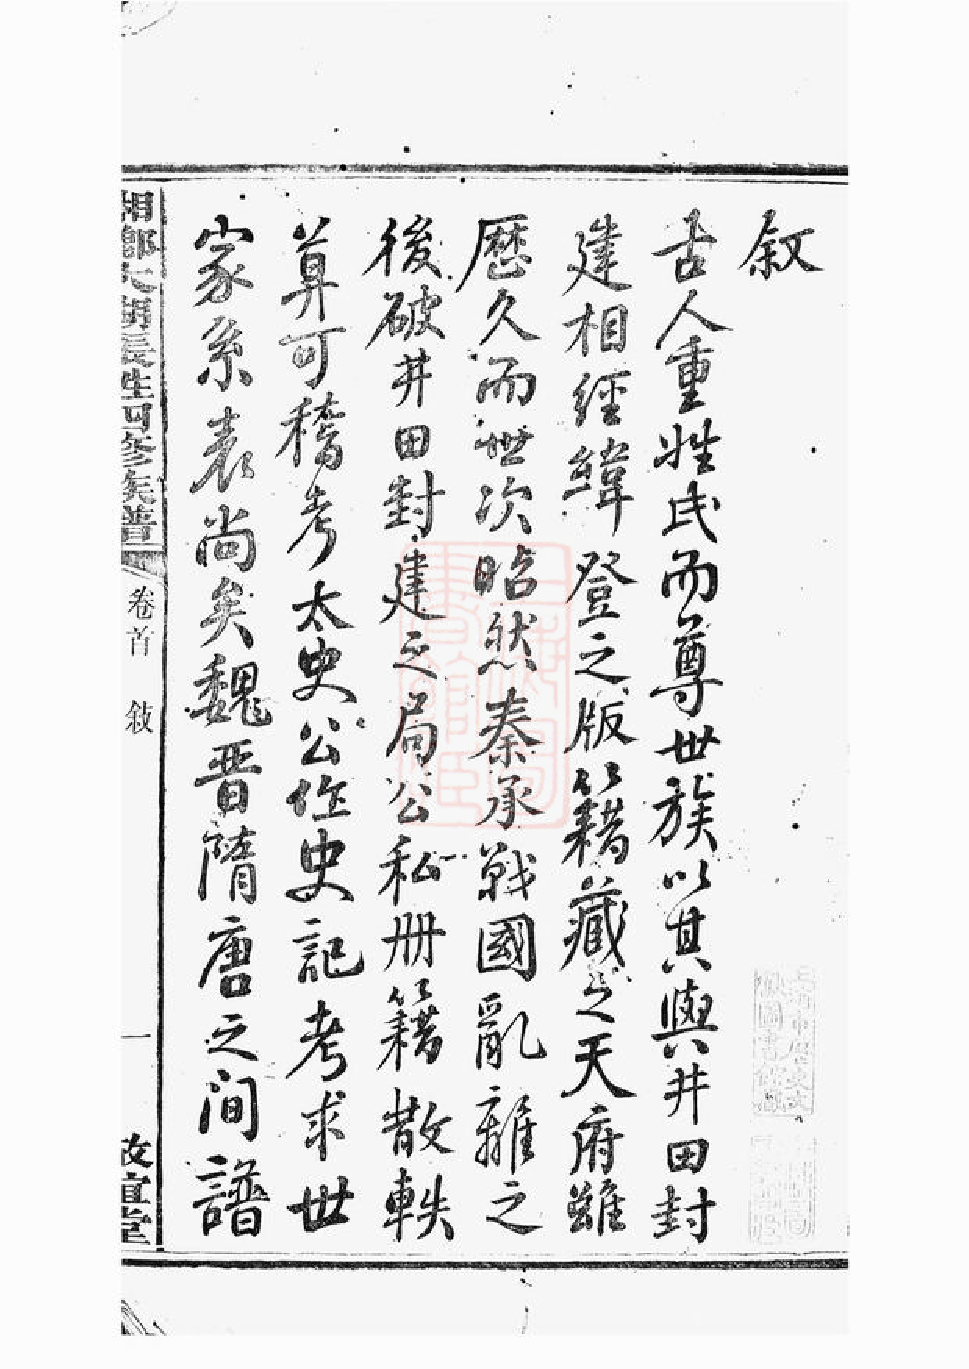 叙
古人重姓氏而尊世族以其與井田封
建相經緯登之版籍藏之天府雖
歷久而世次昭然秦承戰國亂離之
後破井田封建之局公私册籍散軼
莫可稽考太史公作史記考求世
家系表尚矣魏晋隋唐之间譜
湘鄉大湖長姓四修族譜
卷首
敍
一
敦誼堂